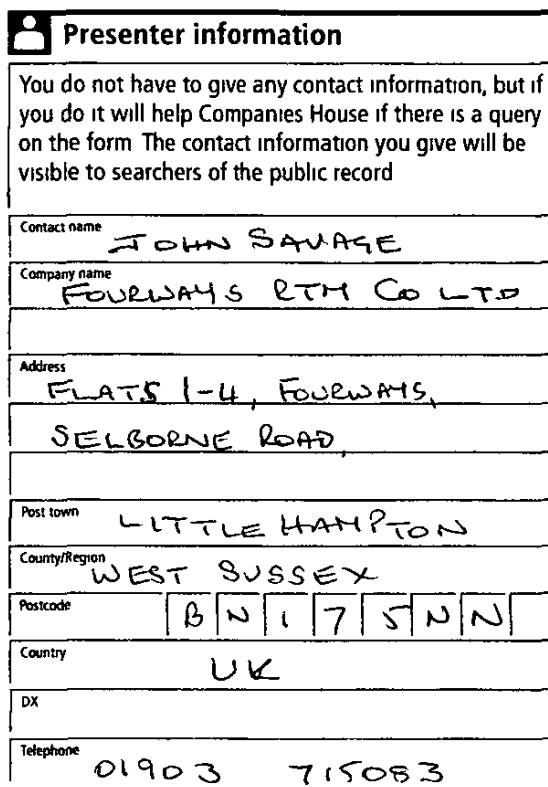 Presenter information
You do not have to give any contact information, but if
you do it will help Companies House if there is a query
on the form The contact information you give will be
visible to searchers of the public record
Contact name
JOHN SAVAGE
Company name
FOURWAYS RTM CO LTD
Address
FLATS 1-4, FOURWAYS,
SELBORNE ROAD,
Post town
LITTLE HAMPTON
County/Region
WEST SUSSEX
Postcode
BN17 5NN
Country
UK
DX
Telephone
01903 715083